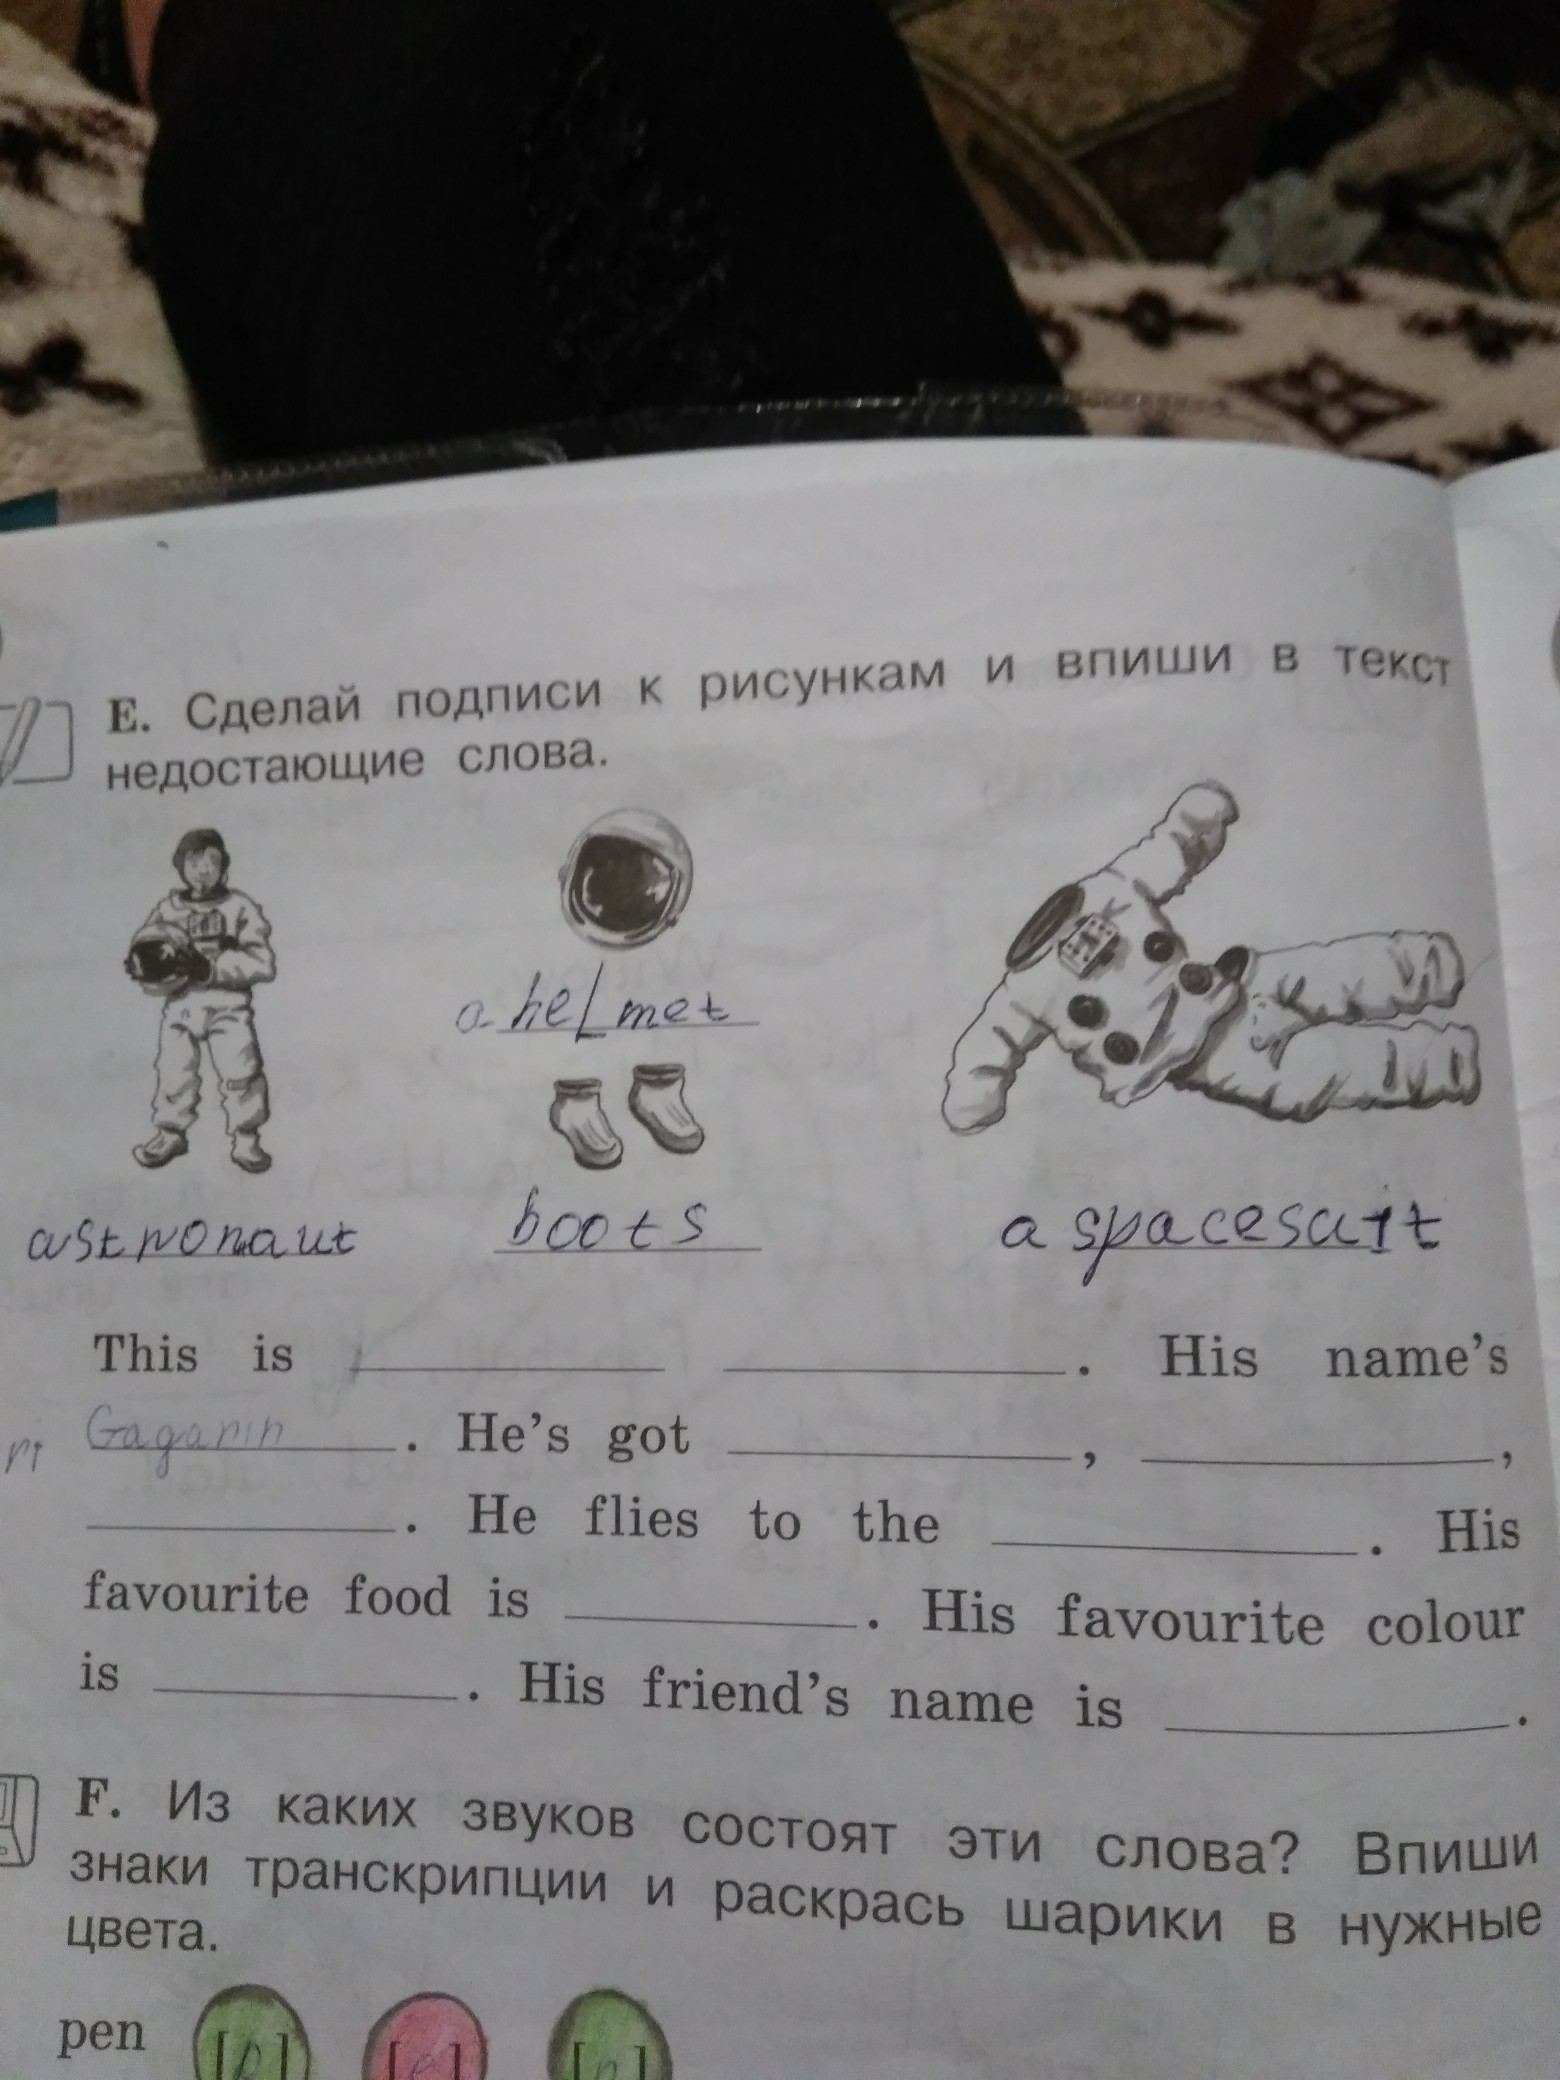 E. Сделай подписи к рисункам и впиши в текст
недостающие слова.
a helmet
astronaut boots a spacesuit
This is ____ ____. His name's
ri Gagarin. He's got ____, ____,
____. He flies to the ____. His
favourite food is ____. His favourite colour
is ____. His friend's name is ____.
F. Из каких звуков состоят эти слова? Впиши
знаки транскрипции и раскрась шарики в нужные
цвета.
pen [p] [e] [n]